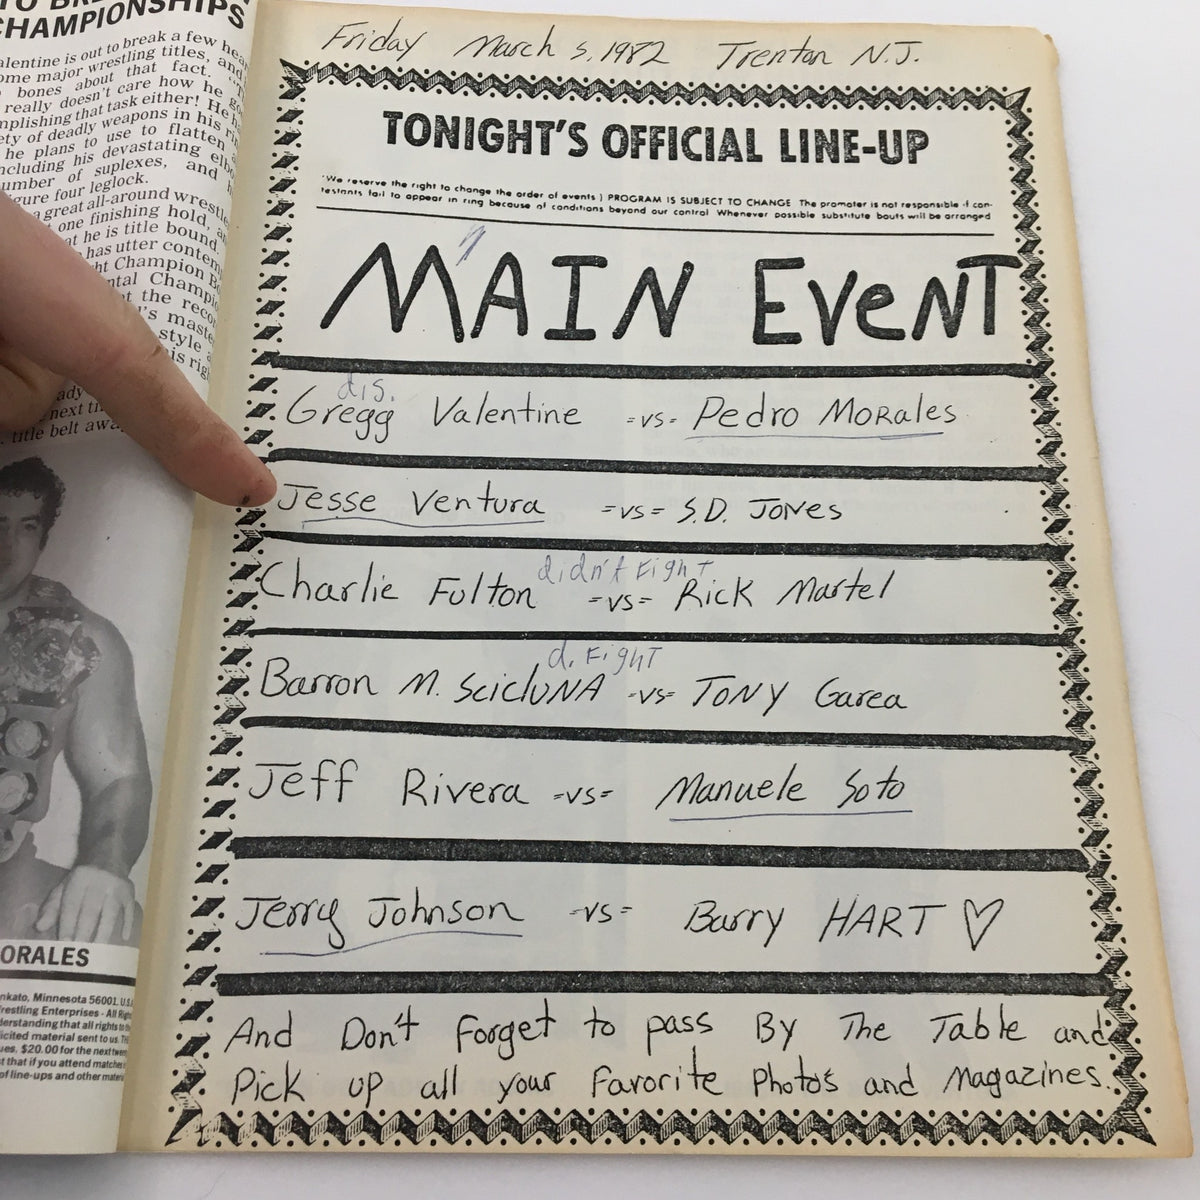 CHAMPIONSHIPS
alentine is out to break a few
ome major wrestling titles, and
bones about that fact.
really doesn't care how he
mplishing that task either! He
ety of deadly weapons in his
he plans to use to flatten
ncluding his devastating
umber of suplexes, and
gure four leglock.
a great all-around
one finishing hold,
at he is title bound.
has utter
ht Champion
ntal
t the
l's
style
next
title belt
ORALES
nkato, Minnesota 56001. U.S.
restling Enterprises - All
derstanding that all rights to
icited material sent to us.
ues. $20.00 for the next
t that if you attend matches
of line-ups and other
Friday March 5, 1982 Trenton N.J.
TONIGHT'S OFFICIAL LINE-UP
"We reserve the right to change the order of events) PROGRAM IS SUBJECT TO CHANGE The promoter is not responsible if con-
testants fail to appear in ring because of conditions beyond our control Whenever possible substitute bouts will be arranged
MAIN EVeNT
dis.
Gregg Valentine =vs= Pedro Morales
Jesse Ventura =vs= S.D. Jones
didn't Fight
Charlie Fulton =vs= Rick Martel
d. Fight
Barron M. Scicluna =vs= Tony Garea
Jeff Rivera =vs= Manuele Soto
Jerry Johnson =vs= Barry HART ♡
And Don't Forget to pass By The Table and
Pick up all your Favorite Photo's and Magazines.